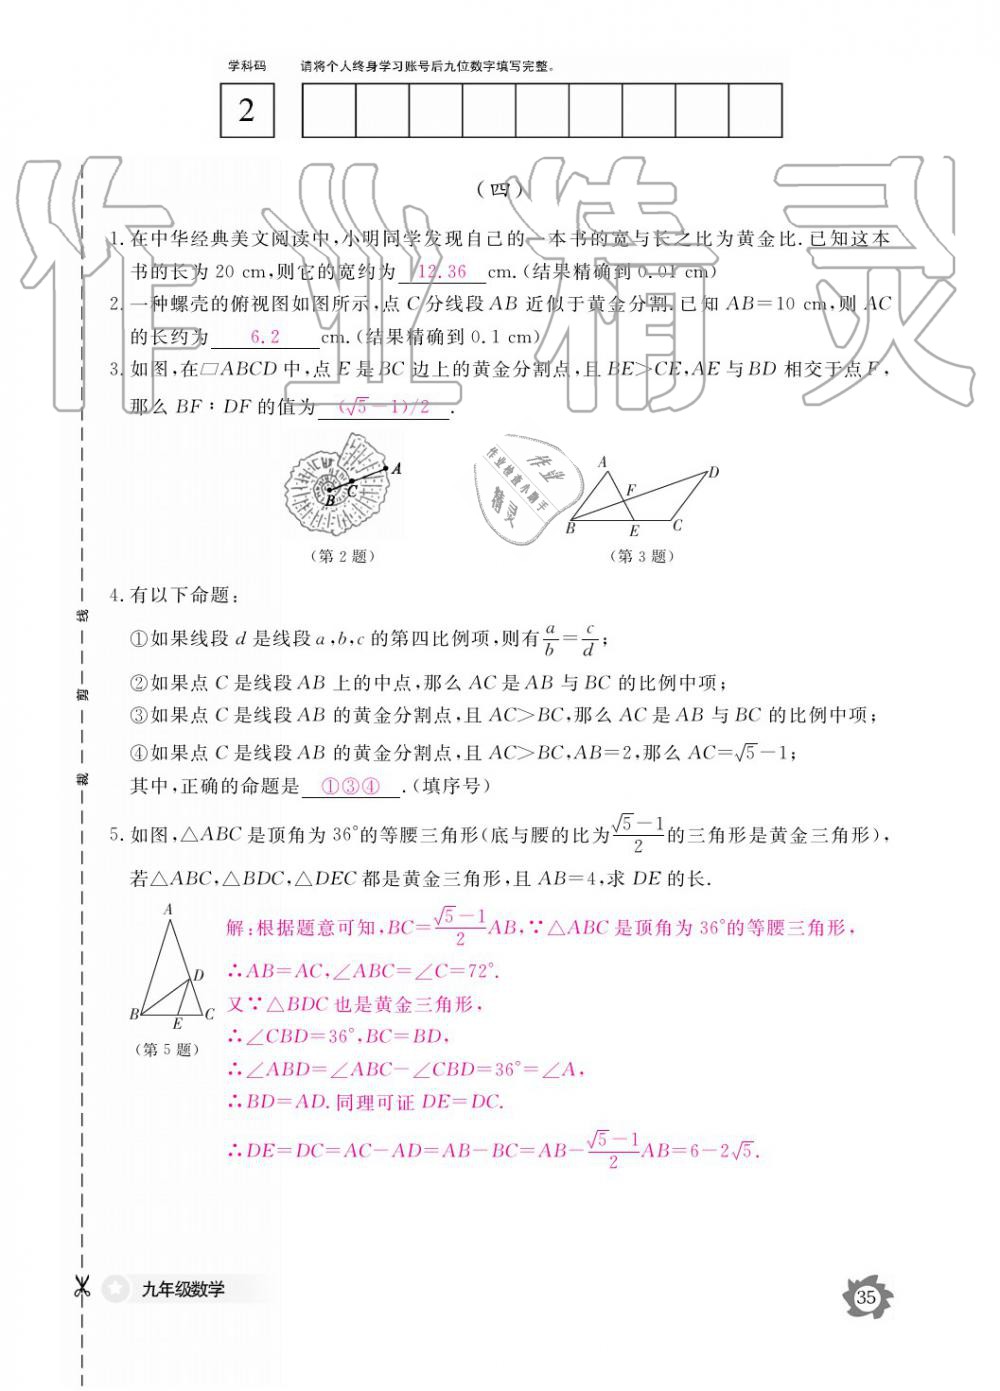 学科码 请将个人终身学习账号后九位数字填写完整。
2
(四)
1. 在中华经典美文阅读中,小明同学发现自己的一本书的宽与长之比为黄金比. 已知这本
书的长为 20 cm,则它的宽约为 12.36 cm. (结果精确到 0.01 cm)
2. 一种螺壳的俯视图如图所示,点 C 分线段 AB 近似于黄金分割. 已知 AB=10 cm,则 AC
的长约为 6.2 cm. (结果精确到 0.1 cm)
3. 如图,在▱ABCD 中,点 E 是 BC 边上的黄金分割点,且 BE>CE,AE 与 BD 相交于点 F,
那么 BF∶DF 的值为 (√5-1)/2 .
A
B
C
A
D
F
B
E
C
作业
作业检查小助手
精灵
(第 2 题)
(第 3 题)
4. 有以下命题:
①如果线段 d 是线段 a,b,c 的第四比例项,则有a/b=c/d;
②如果点 C 是线段 AB 上的中点,那么 AC 是 AB 与 BC 的比例中项;
③如果点 C 是线段 AB 的黄金分割点,且 AC>BC,那么 AC 是 AB 与 BC 的比例中项;
④如果点 C 是线段 AB 的黄金分割点,且 AC>BC,AB=2,那么 AC=√5-1;
其中,正确的命题是 ①③④ . (填序号)
5. 如图,△ABC 是顶角为 36°的等腰三角形(底与腰的比为(√5-1)/2的三角形是黄金三角形),
若△ABC,△BDC,△DEC 都是黄金三角形,且 AB=4,求 DE 的长.
A
D
B
E
C
(第 5 题)
解:根据题意可知,BC=(√5-1)/2AB,∵△ABC 是顶角为 36°的等腰三角形,
∴AB=AC,∠ABC=∠C=72°.
又∵△BDC 也是黄金三角形,
∴∠CBD=36°,BC=BD,
∴∠ABD=∠ABC-∠CBD=36°=∠A,
∴BD=AD. 同理可证 DE=DC.
∴DE=DC=AC-AD=AB-BC=AB-(√5-1)/2AB=6-2√5.
线
剪
裁
九年级数学
35
作业精灵